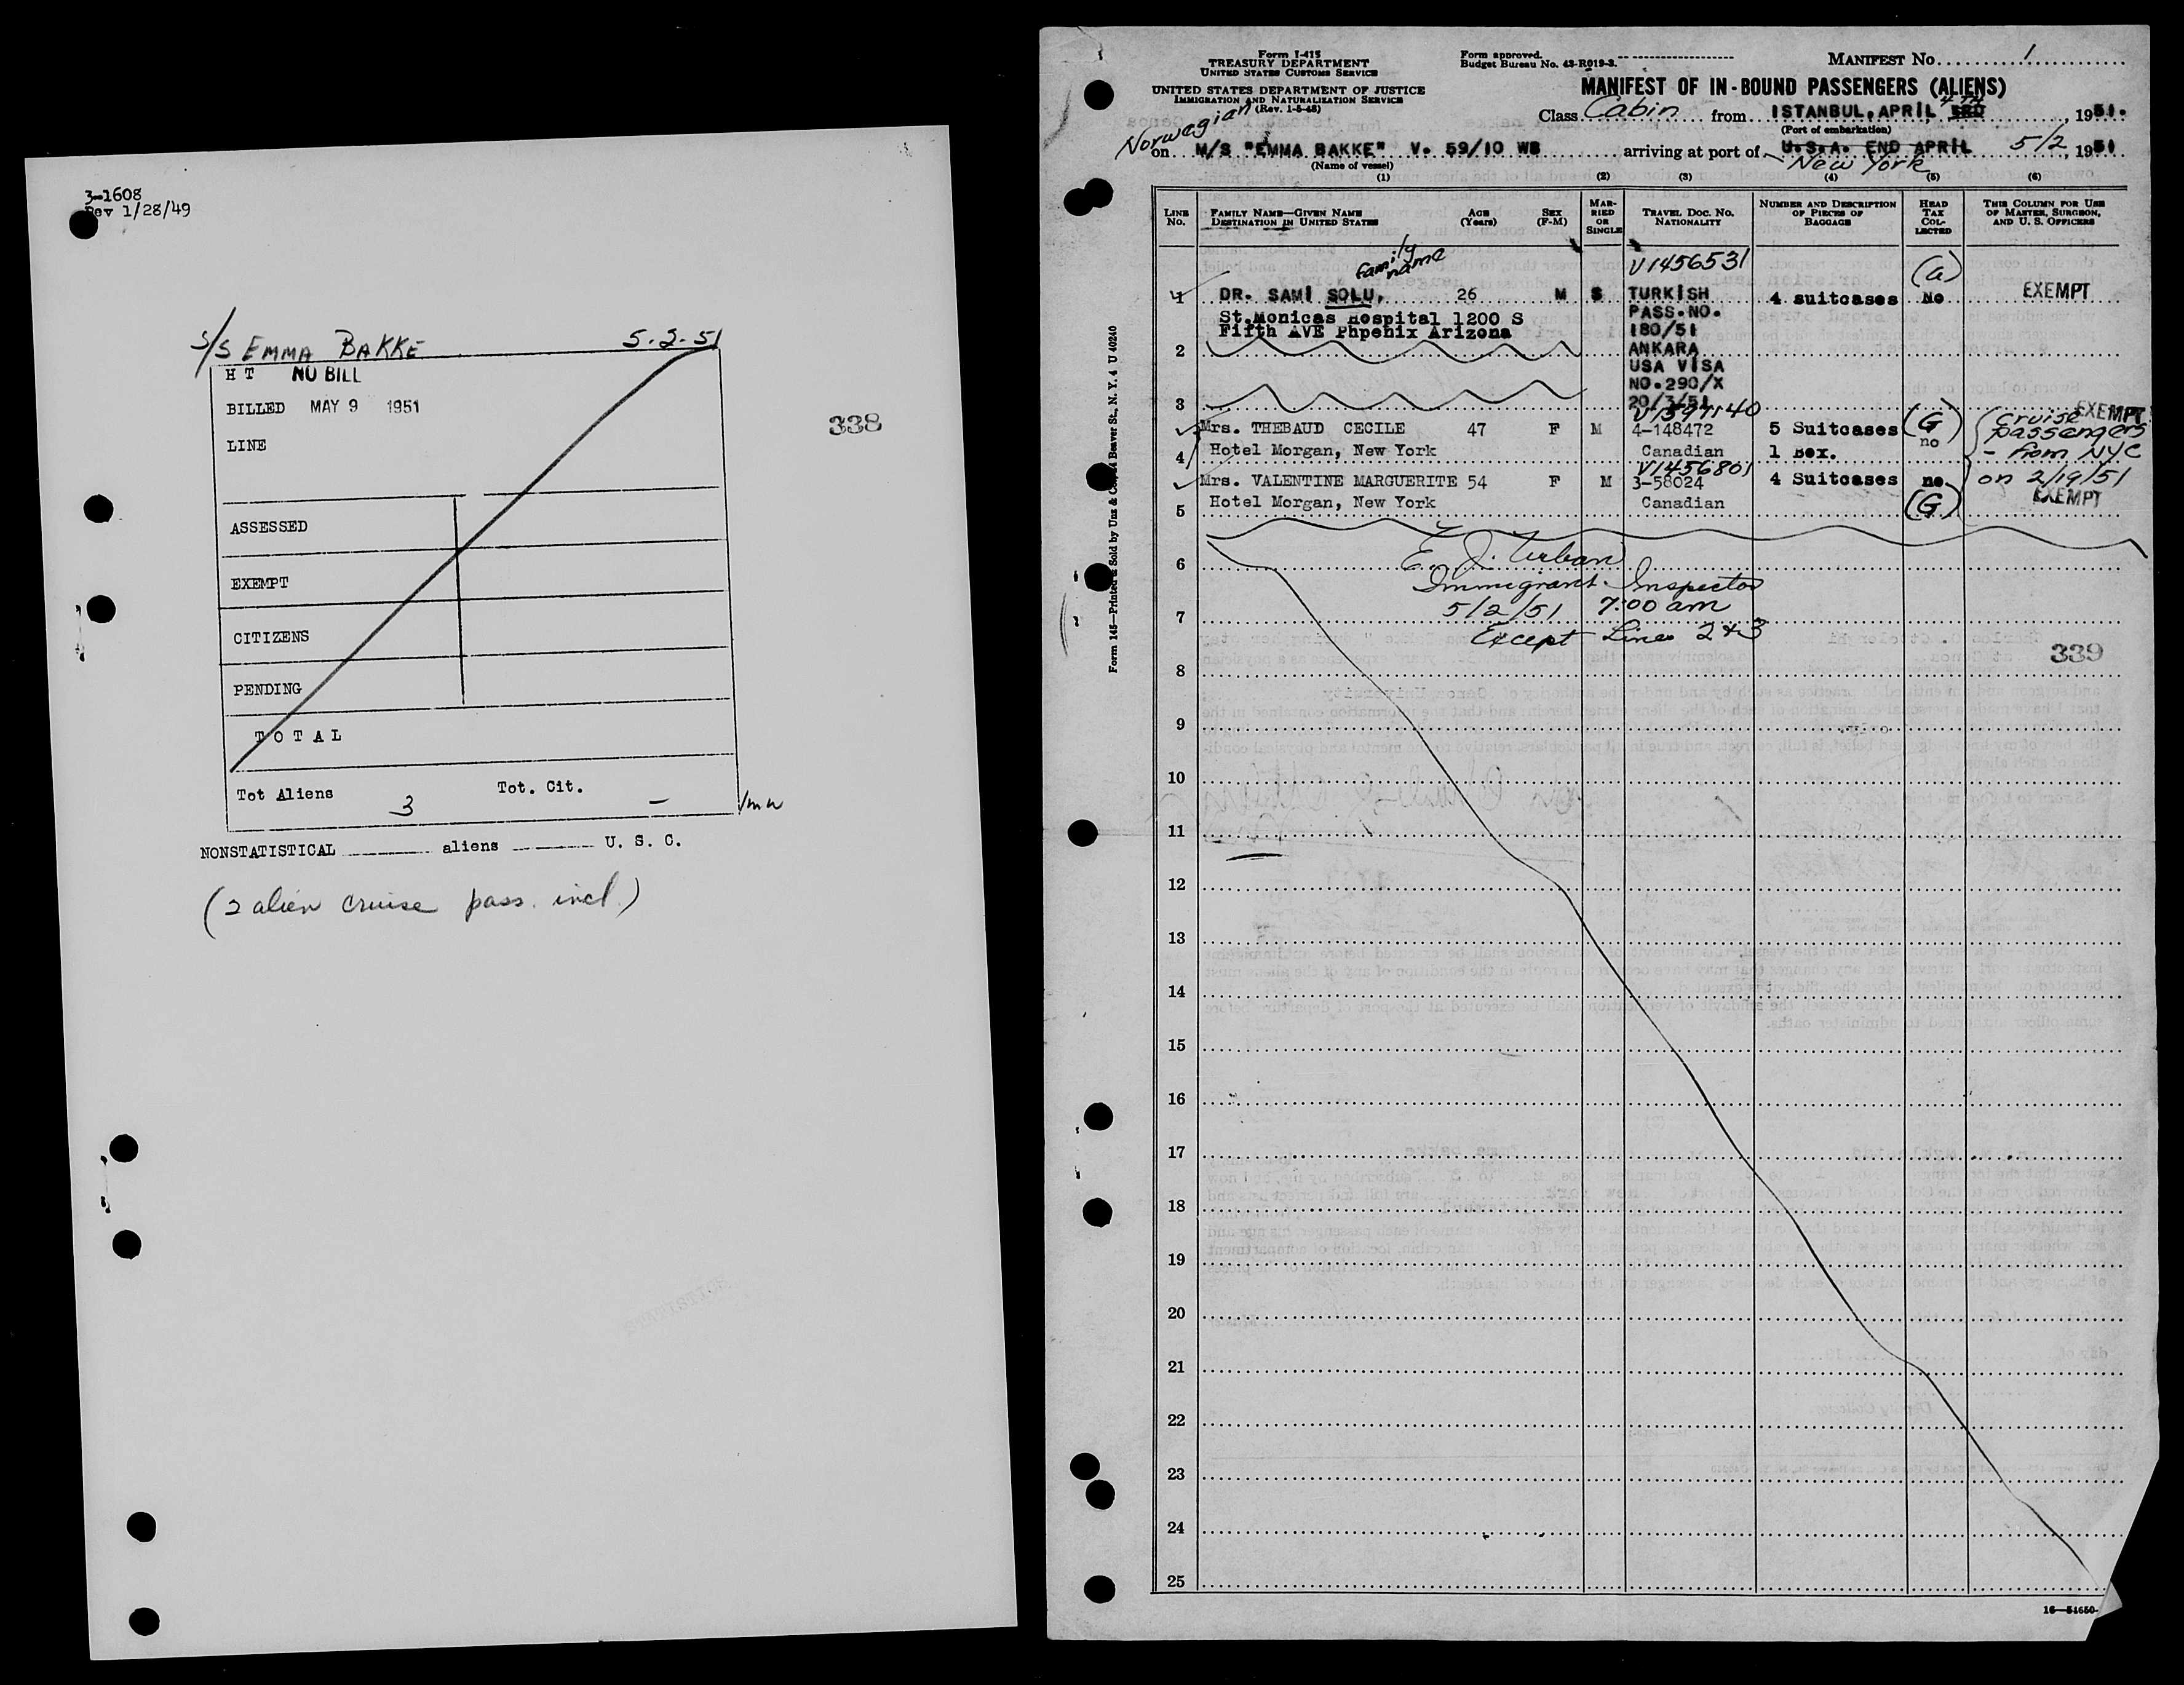 3-1608
Rev 1/28/49
S/S EMMA BAKKE 5-2-51
H T NO BILL
BILLED MAY 9 1951
338
LINE
ASSESSED
EXEMPT
CITIZENS
PENDING
TOTAL
Tot Aliens 3 Tot. Cit. —
NONSTATISTICAL aliens U. S. C.
(2 alien cruise pass. incl.)
Form I-415
TREASURY DEPARTMENT
UNITED STATES CUSTOMS SERVICE
UNITED STATES DEPARTMENT OF JUSTICE
IMMIGRATION AND NATURALIZATION SERVICE
(Rev. 1-5-48)
Form approved.
Budget Bureau No. 43-R019-3.
MANIFEST No. 1
MANIFEST OF IN-BOUND PASSENGERS (ALIENS)
Class Cabin from ISTANBUL, APRIL 4TH 3RD, 1951.
(Port of embarkation)
Norwegian
on M/S "EMMA BAKKE" V. 59/10 WB arriving at port of U.S.A. END APRIL 5/2, 1951
New York
(Name of vessel)
(1) (2) (3) (4) (5) (6)
LINE No.
FAMILY NAME—GIVEN NAME
DESTINATION IN UNITED STATES
AGE (Years)
SEX (F-M)
MARRIED OR SINGLE
TRAVEL DOC. NO. NATIONALITY
NUMBER AND DESCRIPTION OF PIECES OF BAGGAGE
HEAD TAX COLLECTED
THIS COLUMN FOR USE OF MASTER, SURGEON, AND U. S. OFFICERS
family name
V1456531
(a)
1 DR. SAMI SOLU, 26 M S TURKISH 4 suitcases No EXEMPT
St.Monicas Hospital 1200 S
Fifth AVE Phpehix Arizona
PASS.NO.
180/51
2
ANKARA
USA VISA
NO.290/X
20/3/51
3
V1597140
Mrs. THEBAUD CECILE 47 F M 4-148472 5 Suitcases (G) no EXEMPT
4 Hotel Morgan, New York Canadian 1 Box.
Cruise passengers
- from NYC
on 2/19/51
V1456801
Mrs. VALENTINE MARGUERITE 54 F M 3-58024 4 Suitcases no
EXEMPT
5 Hotel Morgan, New York Canadian (G)
6 E. J. Urban
Immigrant Inspector
7 5/2/51 7:00 am
Except Lines 2 & 3
339
8
9
10
11
12
13
14
15
16
17
18
19
20
21
22
23
24
25
16—54650-